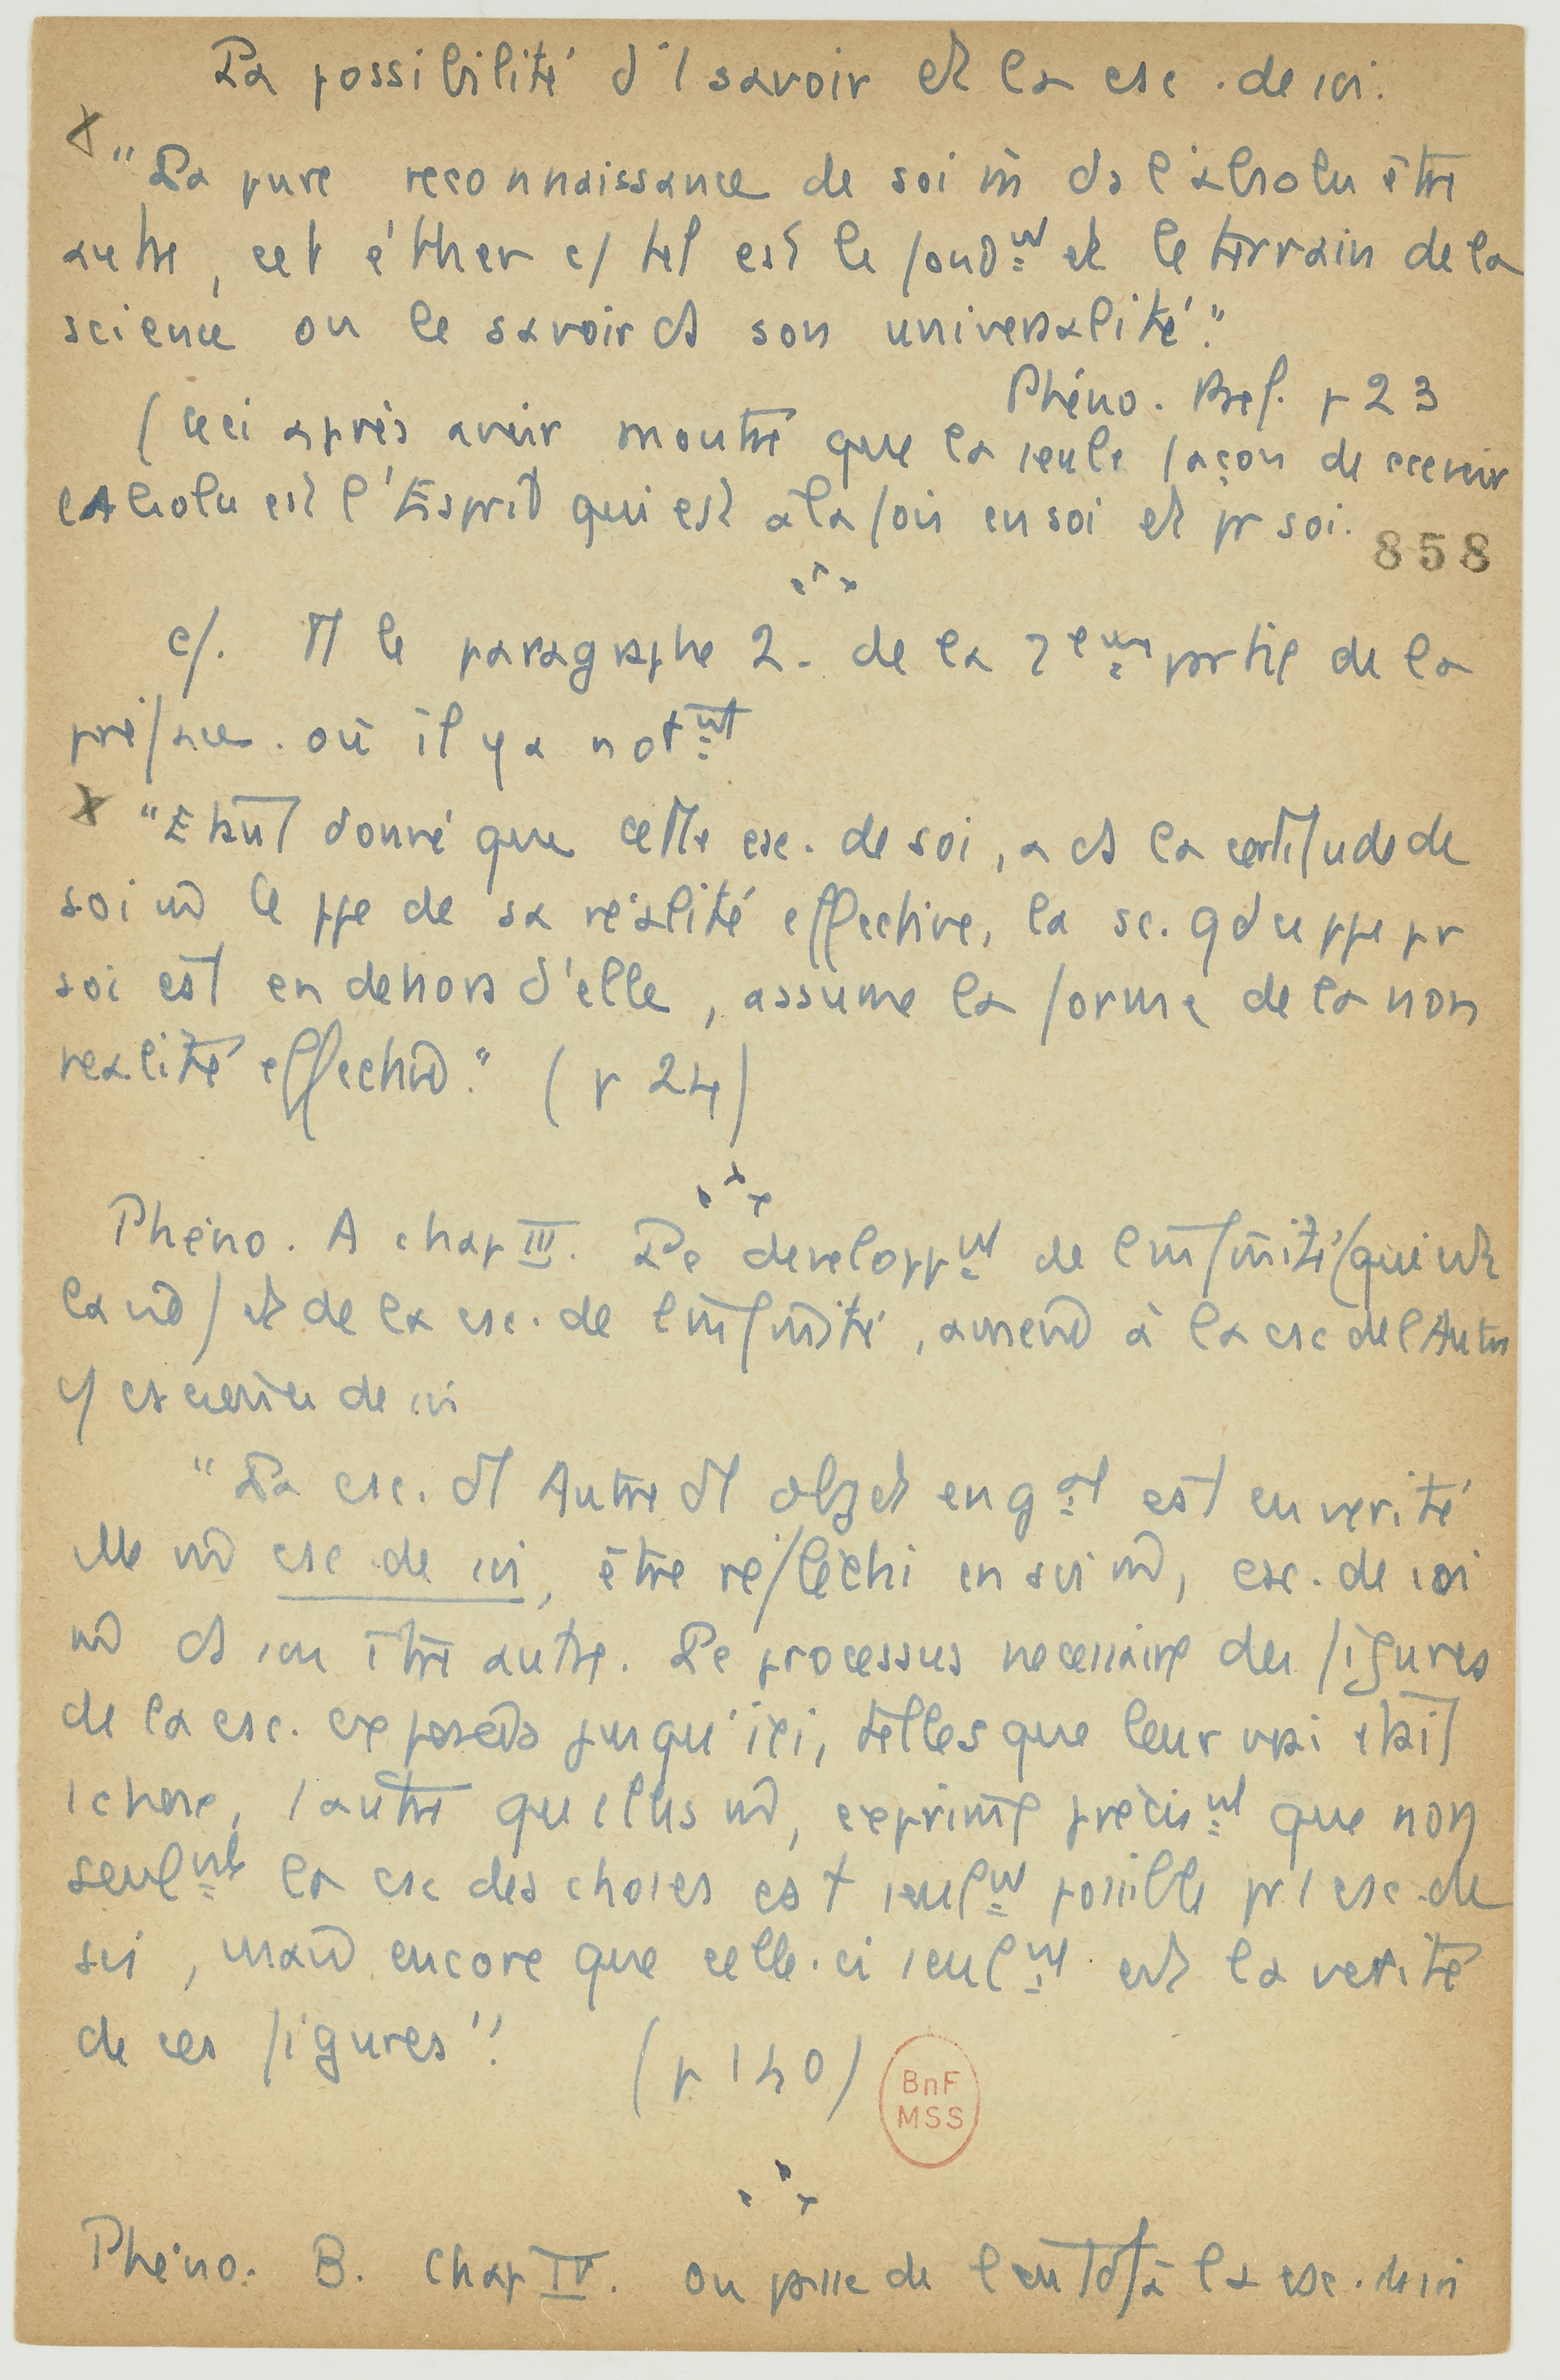 La possibilité d'1 savoir et la csc. de soi.
x "La pure reconnaissance de soi m̂ ds l'absolu être
autre, cet éther c/ tel est le fondnt et le terrain de la
science ou le savoir ds son universalité."
Phéno. Pref. p 23
(Ceci après avoir montré que la seule façon de ccevoir
l'absolu est l'Esprit qui est à la fois en soi et pr soi.
858
cf. tt le paragraphe 2. de la 2eme partie de la
préface. où il y a notnt
x "Etant donné que cette csc. de soi, a ds la certitude de
soi m̂ le ppe de sa réalité effective, la sc. qd ce ppe pr
soi est en dehors d'elle, assume la forme de la non
réalité effective." (p 24)
Phéno. A chap III. Le developpnt de l'infinité (qui est
la vie) et de la csc. de l'infinité, amène à la csc de l'Autre
c/ csc de soi
"La csc. d'1 Autre d'1 objet en gal est en vérité
elle m̂ csc de soi, être réfléchi en soi m̂, csc. de soi
m̂ ds son être autre. Le processus necessaire des figures
de la csc. exposées jusqu'ici, telles que leur vrai était
1 chose, 1 autre qu'elles m̂, exprime précisnt que non
seulnt la csc des choses est seulnt possible pr 1 csc. de
soi, mais encore que celle-ci seulnt est la vérité
de ces figures".
(p 140)
BnF
MSS
Phéno. B. Chap IV. On passe de l'entdt à la csc. de soi